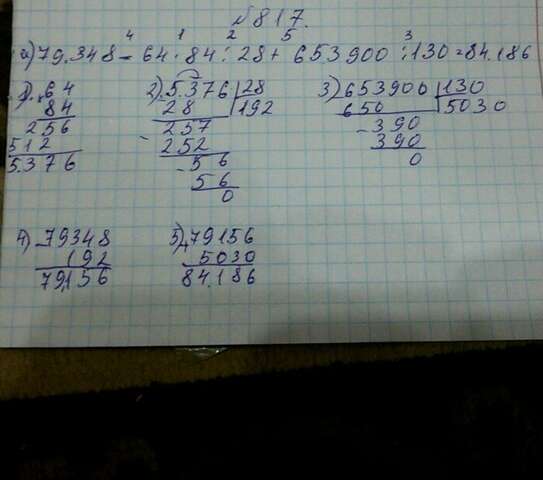 №817.
4 1 2 5 3
а) 79.348 - 64 · 84 : 28 + 653900 : 130 = 84.186
1) 64 2) 5.376 28 3) 653900 130
84 28 192 650 5030
256 257 390
512 252 390
5.376 56 0
56
0
4) 79348 5) 79156
192 5030
79156 84.186